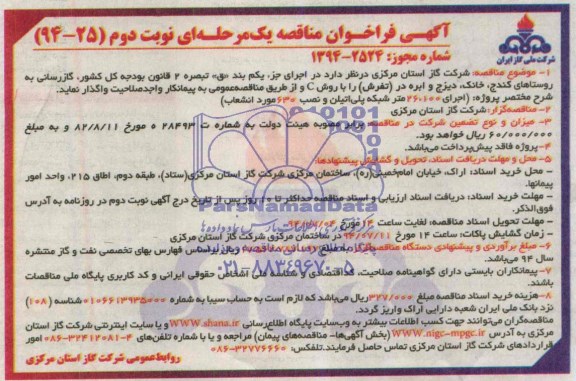 آگهی فراخوان مناقصه یک‌مرحله‌ای نوبت دوم (۲۵-۹۴)
شماره مجوز: ۱۳۹۴-۲۵۲۴
شرکت ملی گاز ایران
۱- موضوع مناقصه: شرکت گاز استان مرکزی درنظر دارد در اجرای جزء یکم بند «ق» تبصره ۲ قانون بودجه کل کشور، گازرسانی به
روستاهای گندج، خانک، دیزج و ابره در (تفرش) را با روش C و از طریق مناقصه‌عمومی به پیمانکار واجدصلاحیت واگذار نماید.
شرح مختصر پروژه: (اجرای ۲۶۰۱۰۰ متر شبکه پلی‌اتیلن و نصب ۶۳۰مورد انشعاب)
۲- مناقصه‌گزار: شرکت گاز استان مرکزی
۳- میزان و نوع تضمین شرکت در مناقصه: برابر مصوبه هیئت دولت به شماره ت ۲۸۴۹۳ ه مورخ ۸۲/۸/۱۱ و به مبلغ
۶۰/۰۰۰/۰۰۰ ریال خواهد بود.
۴- پروژه فاقد پیش‌پرداخت می‌باشد.
۵- محل و مهلت دریافت اسناد، تحویل و گشایش پیشنهادها:
- محل خرید اسناد: اراک، خیابان امام‌خمینی(ره)، ساختمان مرکزی شرکت گاز استان مرکزی(ستاد)، طبقه دوم، اطاق ۲۱۵، واحد امور
پیمانها.
- مهلت خرید اسناد: دریافت اسناد ارزیابی و اسناد مناقصه حداکثر تا ۱۰ روز پس از تاریخ درج آگهی نوبت دوم در روزنامه به آدرس
فوق‌الذکر.
- مهلت تحویل اسناد مناقصه: لغایت ساعت ۱۴ مورخ
- زمان گشایش پاکات: ساعت ۱۴ مورخ ۹۴/۰۷/۱۱ در ساختمان مرکزی شرکت گاز استان مرکزی
۶- مبلغ برآوردی و پیشنهادی دستگاه مناقصه‌گزار به مبلغ ریال براساس فهارس بهای تخصصی نفت و گاز منتشره
سال ۹۴ می‌باشد.
۷- پیمانکاران بایستی دارای گواهینامه صلاحیت، کد اقتصادی و شناسه ملی اشخاص حقوقی ایرانی و کد کاربری پایگاه ملی مناقصات
باشند.
۸- هزینه خرید اسناد مناقصه مبلغ ۳۲۷/۰۰۰ریال می‌باشد که لازم است به حساب سیبا به شماره ۰۱۰۶۶۱۳۹۳۵۰۰۰ شناسه (۱۰۸)
نزد بانک ملی ایران شعبه دارایی اراک واریز گردد.
مناقصه‌گران می‌توانند جهت کسب اطلاعات بیشتر به وب‌سایت پایگاه اطلاع‌رسانی WWW.shana.ir و یا سایت اینترنتی شرکت گاز استان
مرکزی به آدرس WWW.nigc-mpgc.ir (بخش آگهی‌ها- مناقصه‌های پیمان) مراجعه و یا با شماره تلفن‌های ۴-۳۲۴۱۲۰۸۱-۰۸۶ امور
قراردادهای شرکت گاز استان مرکزی تماس حاصل فرمایند.تلفکس: ۳۲۷۷۶۶۶۰-۰۸۶
روابط‌عمومی شرکت گاز استان مرکزی
ParsNamadData
۰۲۱-۸۸۳۴۹۶۷۰-۵